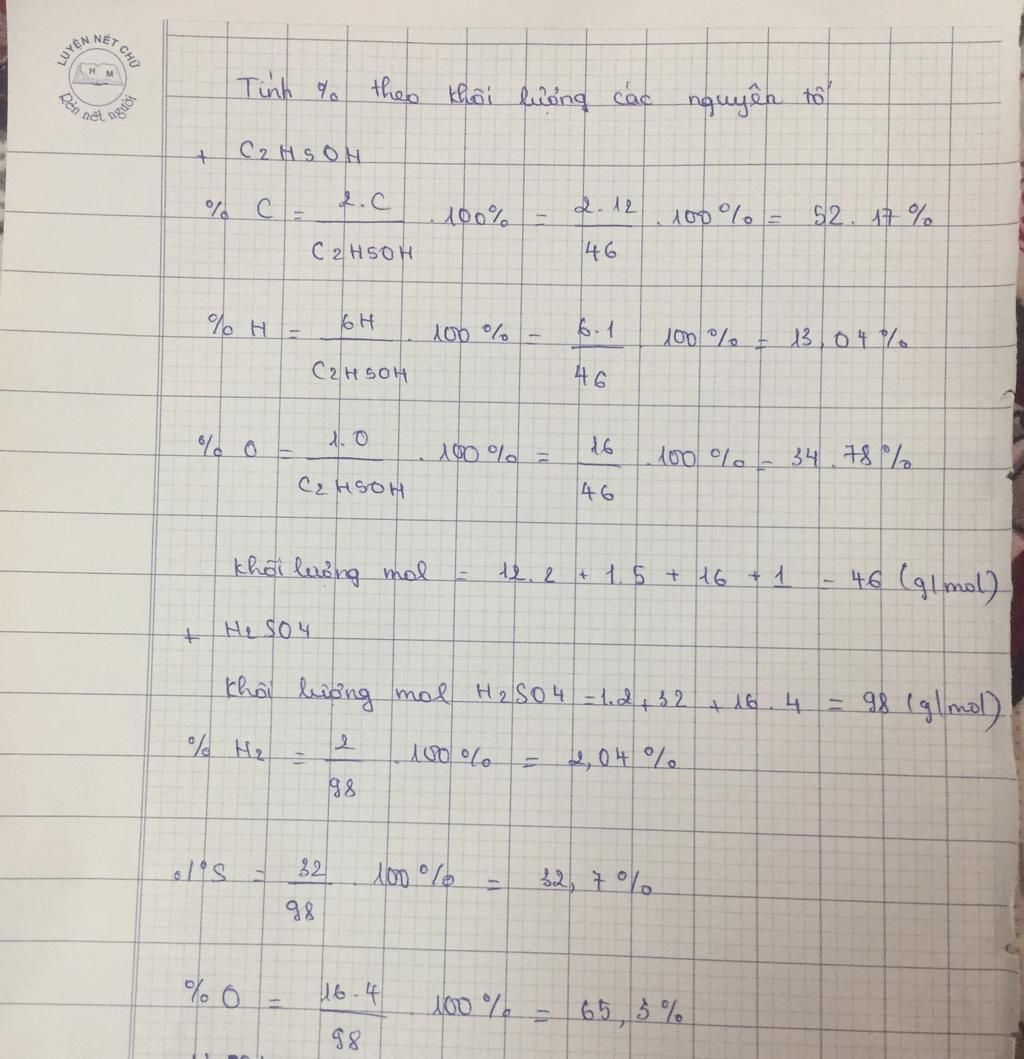 LUYỆN NÉT CHỮ
H M
Rèn nết người
Tính % theo khối lượng các nguyên tố
+ C2H5OH
% C = 2.C / C2H5OH . 100% = 2.12 / 46 . 100% = 52.17%
% H = 6H / C2H5OH . 100% = 6.1 / 46 . 100% = 13,04%
% O = 1.O / C2H5OH . 100% = 16 / 46 . 100% = 34.78%
Khối lượng mol = 12.2 + 1.5 + 16 + 1 = 46 (g/mol)
+ H2SO4
Khối lượng mol H2SO4 = 1.2 + 32 + 16.4 = 98 (g/mol)
% H2 = 2 / 98 . 100% = 2,04%
% S = 32 / 98 100% = 32,7%
% O = 16.4 / 98 100% = 65,3%